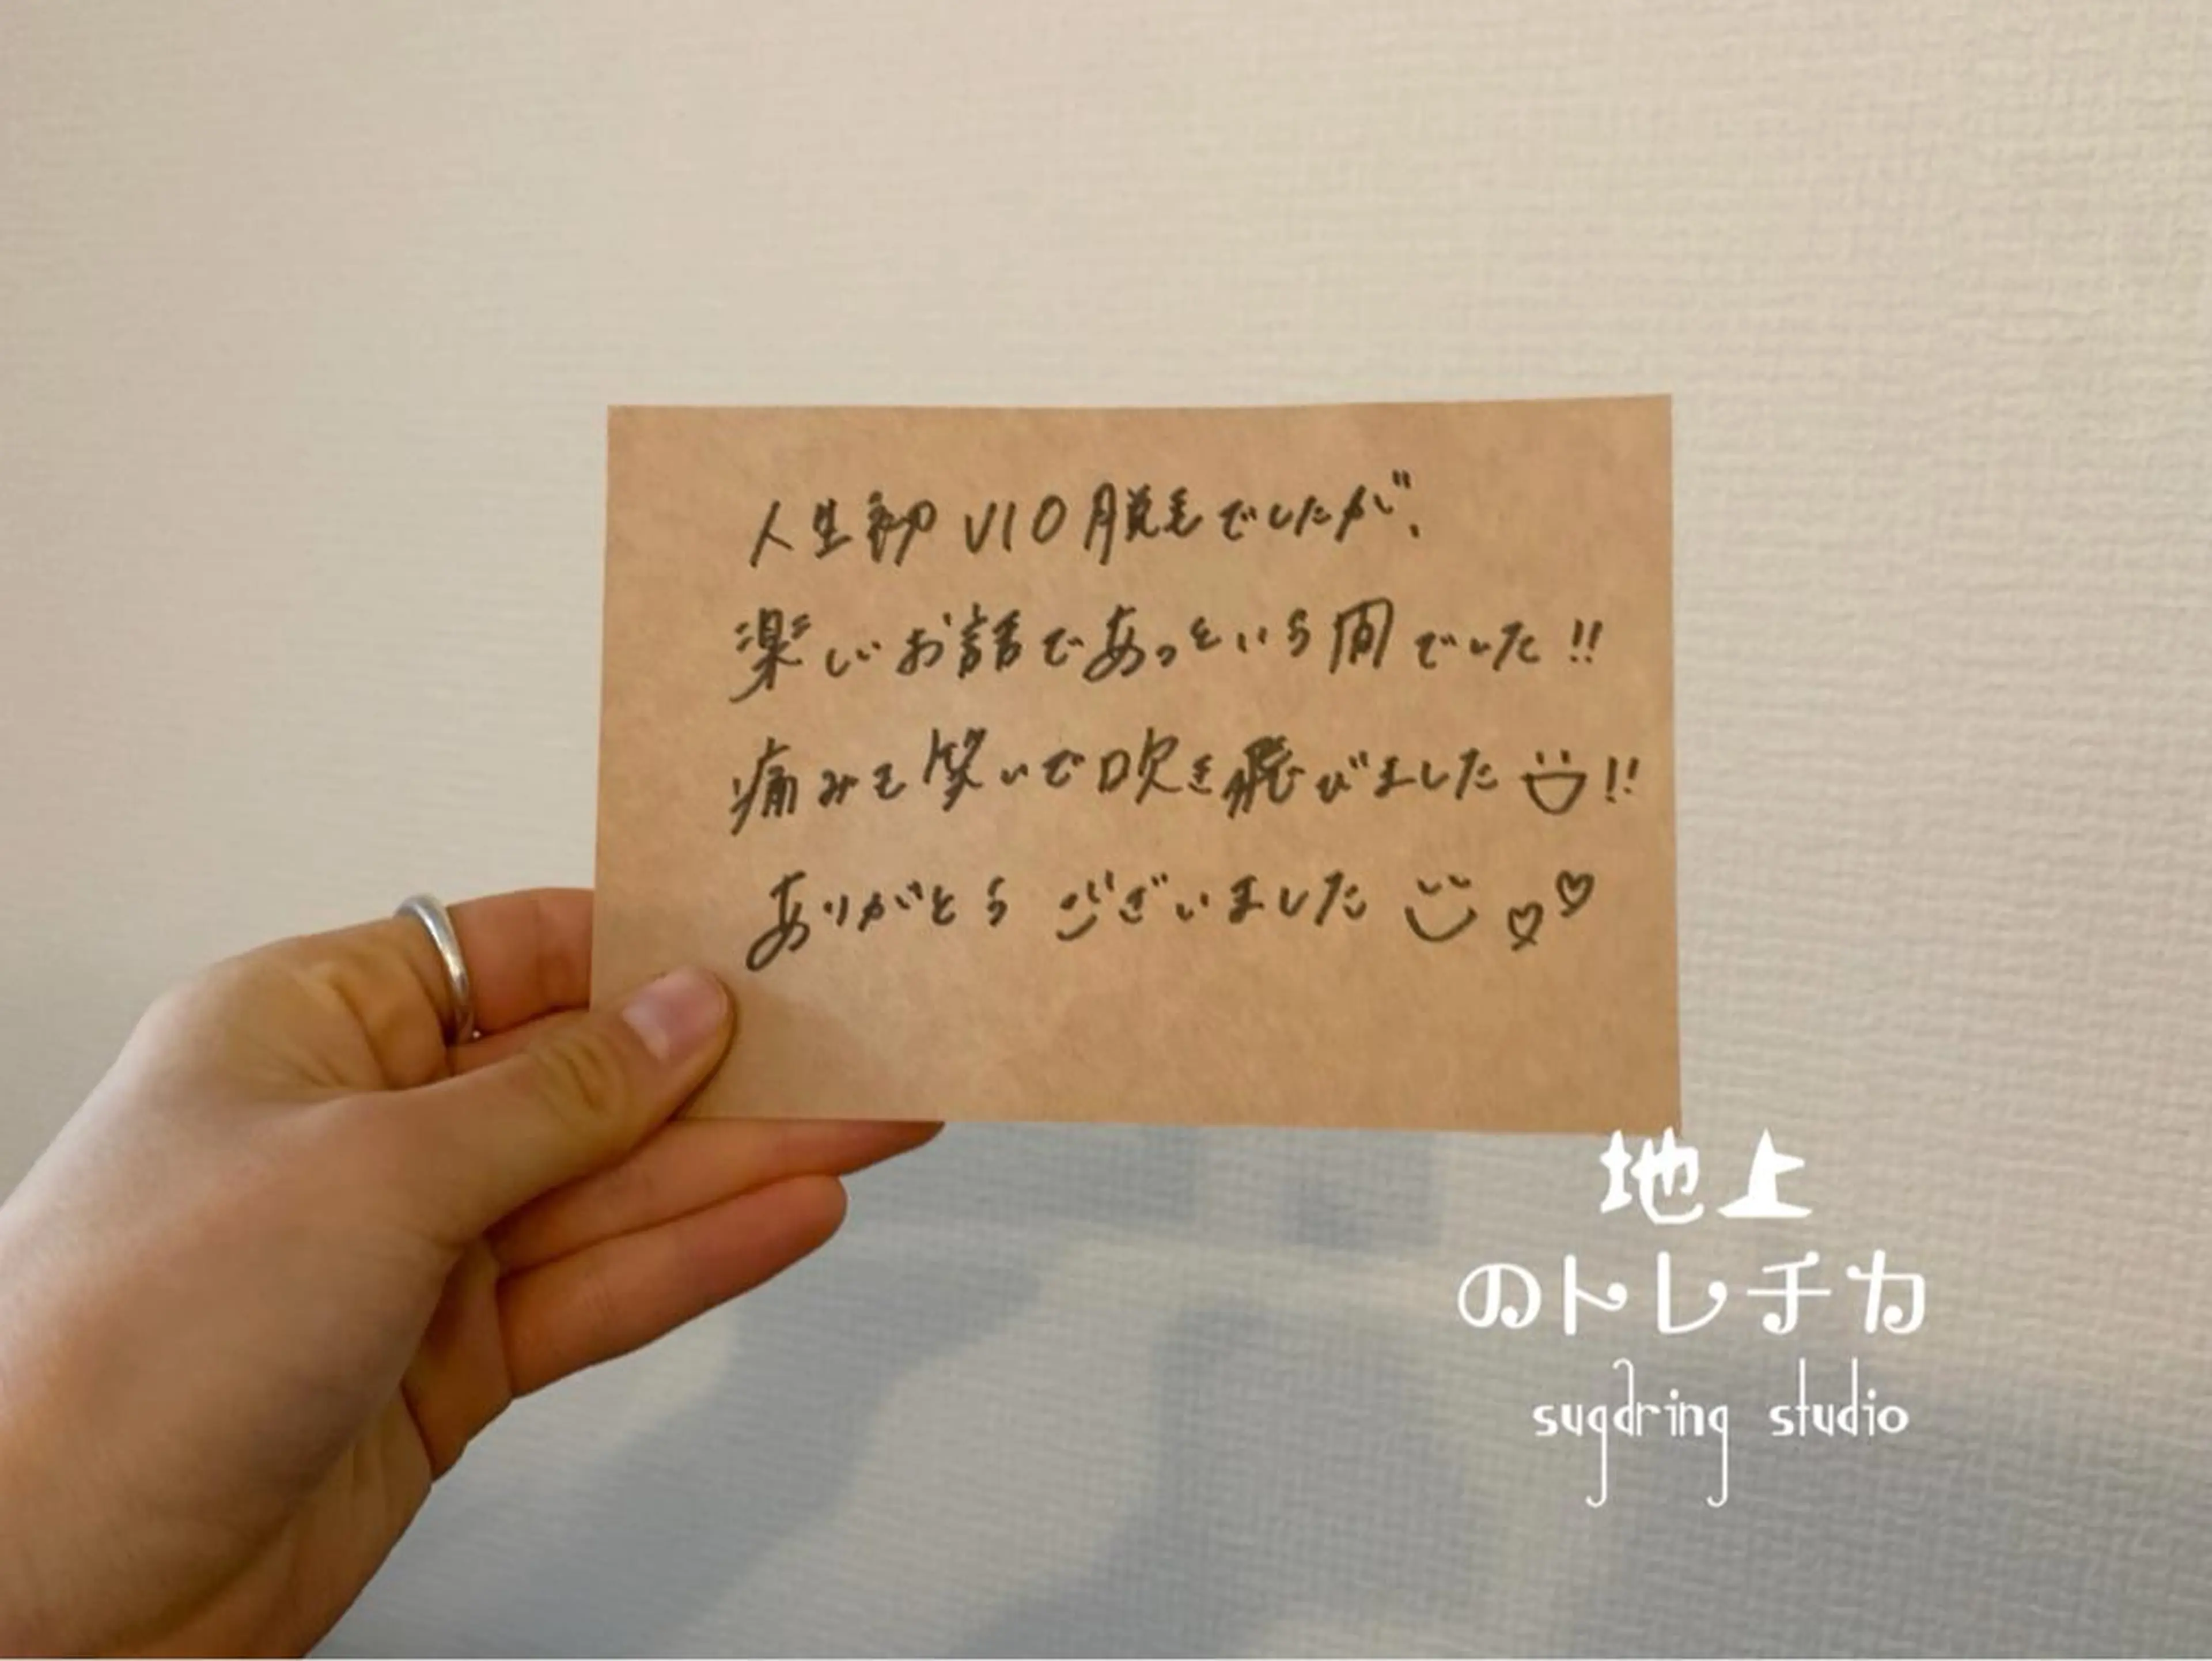 人生初VIO脱毛でしたが、
楽しいお話であっという間でした!!
痛みも笑いで吹き飛びました!!
ありがとうございました
地上
のトレチカ
sugaring studio